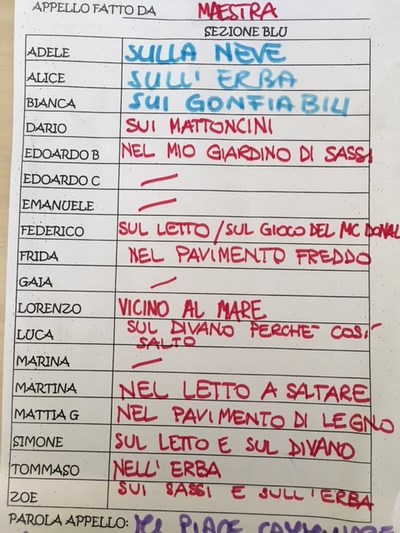 APPELLO FATTO DA MAESTRA
SEZIONE BLU
ADELE SULLA NEVE
ALICE SULL' ERBA
BIANCA SUI GONFIABILI
DARIO SUI MATTONCINI
EDOARDO B NEL MIO GIARDINO DI SASSI
EDOARDO C —
EMANUELE —
FEDERICO SUL LETTO / SUL GIOCO DEL MC DONAL
FRIDA NEL PAVIMENTO FREDDO
GAIA —
LORENZO VICINO AL MARE
LUCA SUL DIVANO PERCHE' COSI' SALTO
MARINA —
MARTINA NEL LETTO A SALTARE
MATTIA G NEL PAVIMENTO DI LEGNO
SIMONE SUL LETTO E SUL DIVANO
TOMMASO NELL' ERBA
ZOE SUI SASSI E SULL'ERBA
PAROLA APPELLO: PIACE CAMMINARE